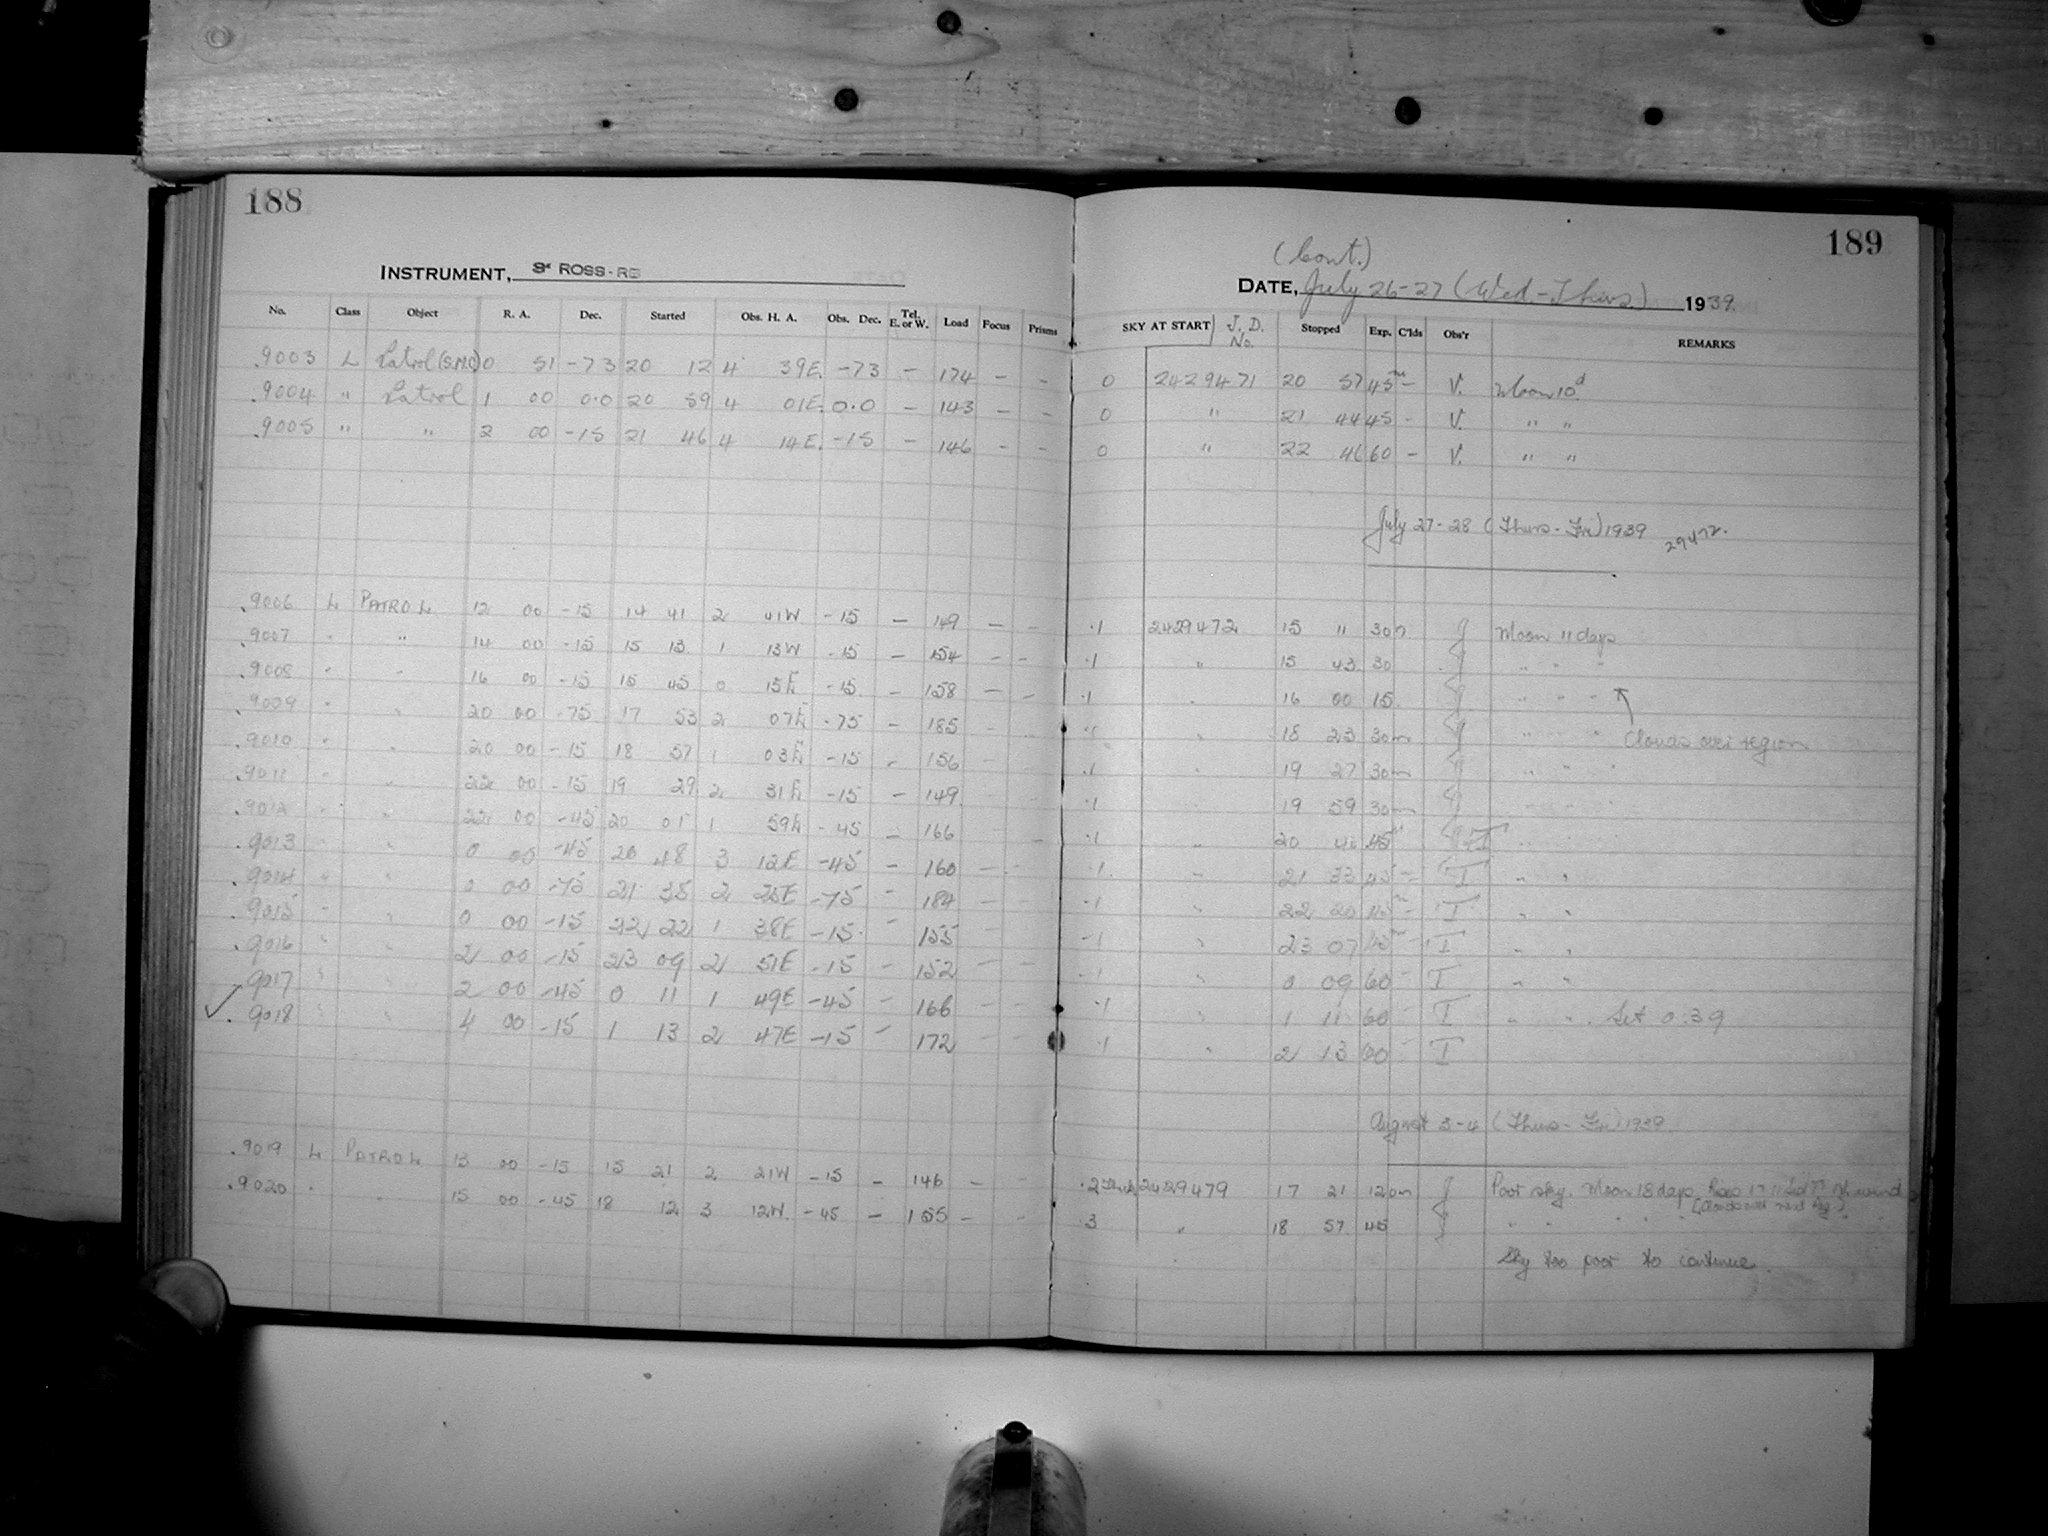 188
INSTRUMENT, 3" ROSS-RB
No. Class Object R. A. Dec. Started Obs. H. A. Obs. Dec. Tel. E. or W. Load Focus Prisms
9003 L Patrol (S.M.C) 0 51 -73 20 12 4 39E. -73 - 174 - -
9004 " Patrol 1 00 0.0 20 59 4 01E. 0.0 - 143 - -
9005 " " 2 00 -15 21 46 4 14E. -15 - 146 - -
9006 L PATROL 12 00 -15 14 41 2 41W -15 - 149 - -
9007 " " 14 00 -15 15 13 1 13W -15 - 154 - -
9008 " " 16 00 -15 15 45 0 15E -15 - 158 - -
9009 " " 20 00 -75 17 53 2 07E -75 - 185 - -
9010 " " 20 00 -15 18 57 1 03E -15 - 156 - -
9011 " " 22 00 -15 19 29 2 31E -15 - 149 - -
9012 " " 22 00 -45 20 01 1 59E -45 - 166 - -
9013 " " 0 00 -45 20 48 3 12E -45 - 160 - -
9014 " " 0 00 -75 21 35 2 25E -75 - 184 - -
9015 " " 0 00 -15 22 22 1 38E -15 - 155 - -
9016 " " 2 00 -15 23 09 2 51E -15 - 152 - -
9017 " " 2 00 -45 0 11 1 49E -45 - 166 - -
✓ 9018 " " 4 00 -15 1 13 2 47E -15 - 172 - -
9019 L PATROL 13 00 -15 15 21 2 21W -15 - 146 - -
9020 " " 15 00 -45 18 12 3 12W. -45 - 155 - -
189
(Cont.)
DATE, July 26-27 (Wed-Thurs) 1939.
SKY AT START J. D. No. Stopped Exp. C'lds Obs'r REMARKS
0 2429471 20 57 45m - V. Moon 10d
0 " 21 44 45 - V. " "
0 " 22 46 60 - V. " "
July 27-28 (Thurs-Fri) 1939 29472.
.1 2429472 15 11 30m J Moon 11 days
.1 " 15 43 30 J " " "
.1 " 16 00 15 J " " "
.1 " 18 23 30m J " " " Clouds over region
.1 " 19 27 30m J " " "
.1 " 19 59 30m J " " "
.1 " 20 46 45m J I " " "
.1 " 21 33 45 - I " "
.1 " 22 20 45m - I " "
.1 " 23 07 45m - I " "
.1 " 0 09 60 - I " "
.1 " 1 11 60 - I " " . Set 0:39
.1 " 2 13 60 - I
August 3-4 (Thurs-Fri) 1939.
.2 2429479 17 21 120m J Poor sky. Moon 18 days. Rises 17
.3 " 18 57 45 J " " " "
Sky too poor to continue.